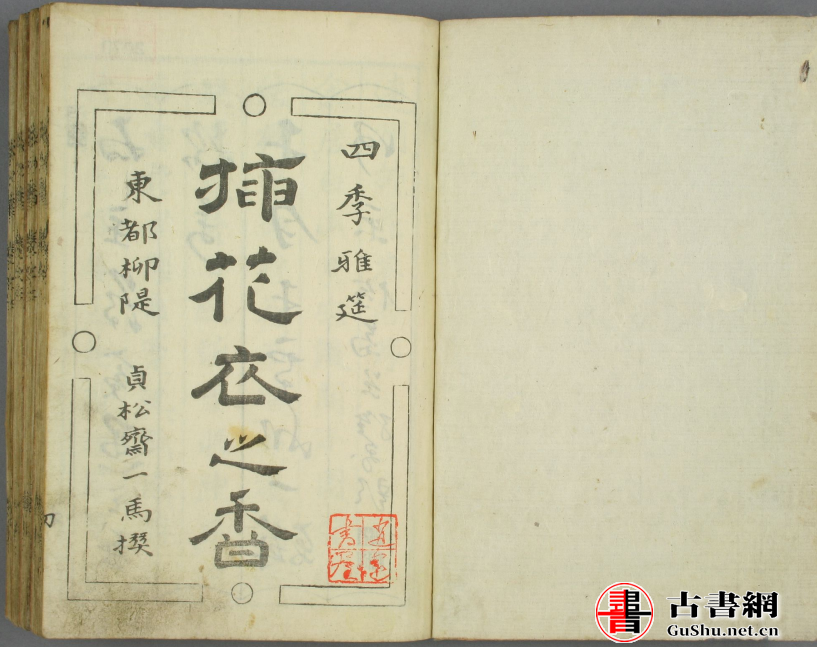 四季雅筵
挿花衣之香
東都柳隄 貞松齋一馬撰
古書網
GuShu.net.cn